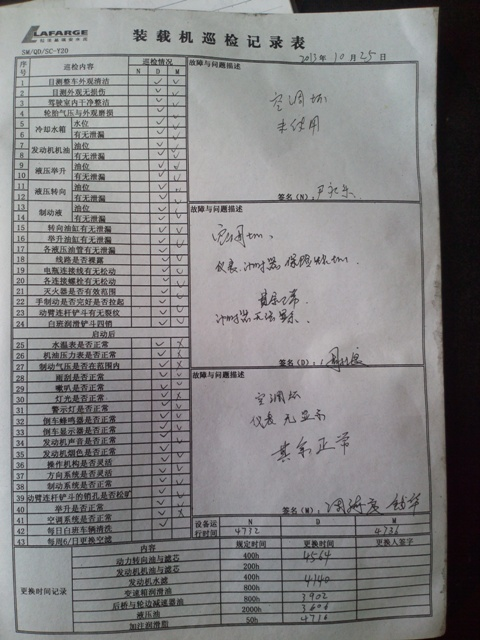 LAFARGE
装载机巡检记录表
SM/QD/SC-Y20
2013年10月25日
序号 巡检内容 巡检情况 故障与问题描述
N D M
1 目测整车外观清洁 ✓ ✓
2 目测外观无损伤 ✓ ✓
3 驾驶室内干净整洁 ✓ ✓
4 轮胎气压与外观磨损 ✓ ✓
5 冷却水箱 水位 ✓ ✓
6 有无泄漏 ✓ ✓
7 发动机机油 油位 ✓ ✓
8 有无泄漏 ✓ ✓
9 液压举升 油位 ✓ ✓
10 有无泄漏 ✓ ✓
11 液压转向 油位 ✓ ✓
12 有无泄漏 ✓ ✓
13 制动液 油位 ✓ ✓
14 有无泄漏 ✓ ✓
15 转向油缸有无泄漏 ✓ ✓
16 举升油缸有无泄漏 ✓ ✓
17 各液压油管有无泄漏 ✓ ✓
18 线路是否裸露 ✓ ✓
19 电瓶连接线有无松动 ✓ ✓
20 各连接螺栓有无松动 ✓ ✓
21 灭火器是否有效范围 ✓ ✓
22 手制动是否完好是否拉起 ✓ ✓
23 动臂连杆铲斗有无裂纹 ✓ ✓
24 白班润滑铲斗四销 ✓ ✓
启动后
25 水温表是否正常 ✓ ×
26 机油压力表是否正常 ✓ ×
27 制动气压是否在范围内 ✓ ×
28 雨刮是否正常 ✓ ✓
29 喇叭是否正常 ✓ ✓
30 灯光是否正常 ✓ ×
31 警示灯是否正常 ✓ ✓
32 倒车蜂鸣器是否正常 ✓ ✓
33 倒车显示器是否正常 ✓ ✓
34 发动机声音是否正常 ✓ ✓
35 发动机烟色是否正常 ✓ ✓
36 操作机构是否灵活 ✓ ✓
37 方向系统是否灵活 ✓ ✓
38 制动系统是否正常 ✓ ✓
39 动臂连杆铲斗的销孔是否松旷 ✓ ✓
40 举升是否正常 ✓ ✓
41 空调系统是否正常 ✓ ×
42 每日白班车辆清洗 ✓
43 每周6/日更换空滤
空调坏
未使用
签名(N):
故障与问题描述
空调坏、
仪表、计时器保险坏、
其余正常
计时器无法显示、
签名(D):
故障与问题描述
空调坏
仪表无显示
其余正常
签名(M):
设备运行时间 N D M
4732 4736
更换时间记录 内容 规定时间 更换时间 更换人签字
动力转向油与滤芯 400h 4564
发动机机油与滤芯 200h
发动机水滤 400h 4140
变速箱润滑油 800h 3902
后桥与轮边减速器油 800h 3606
液压油 2000h 4716
加注润滑脂 50h